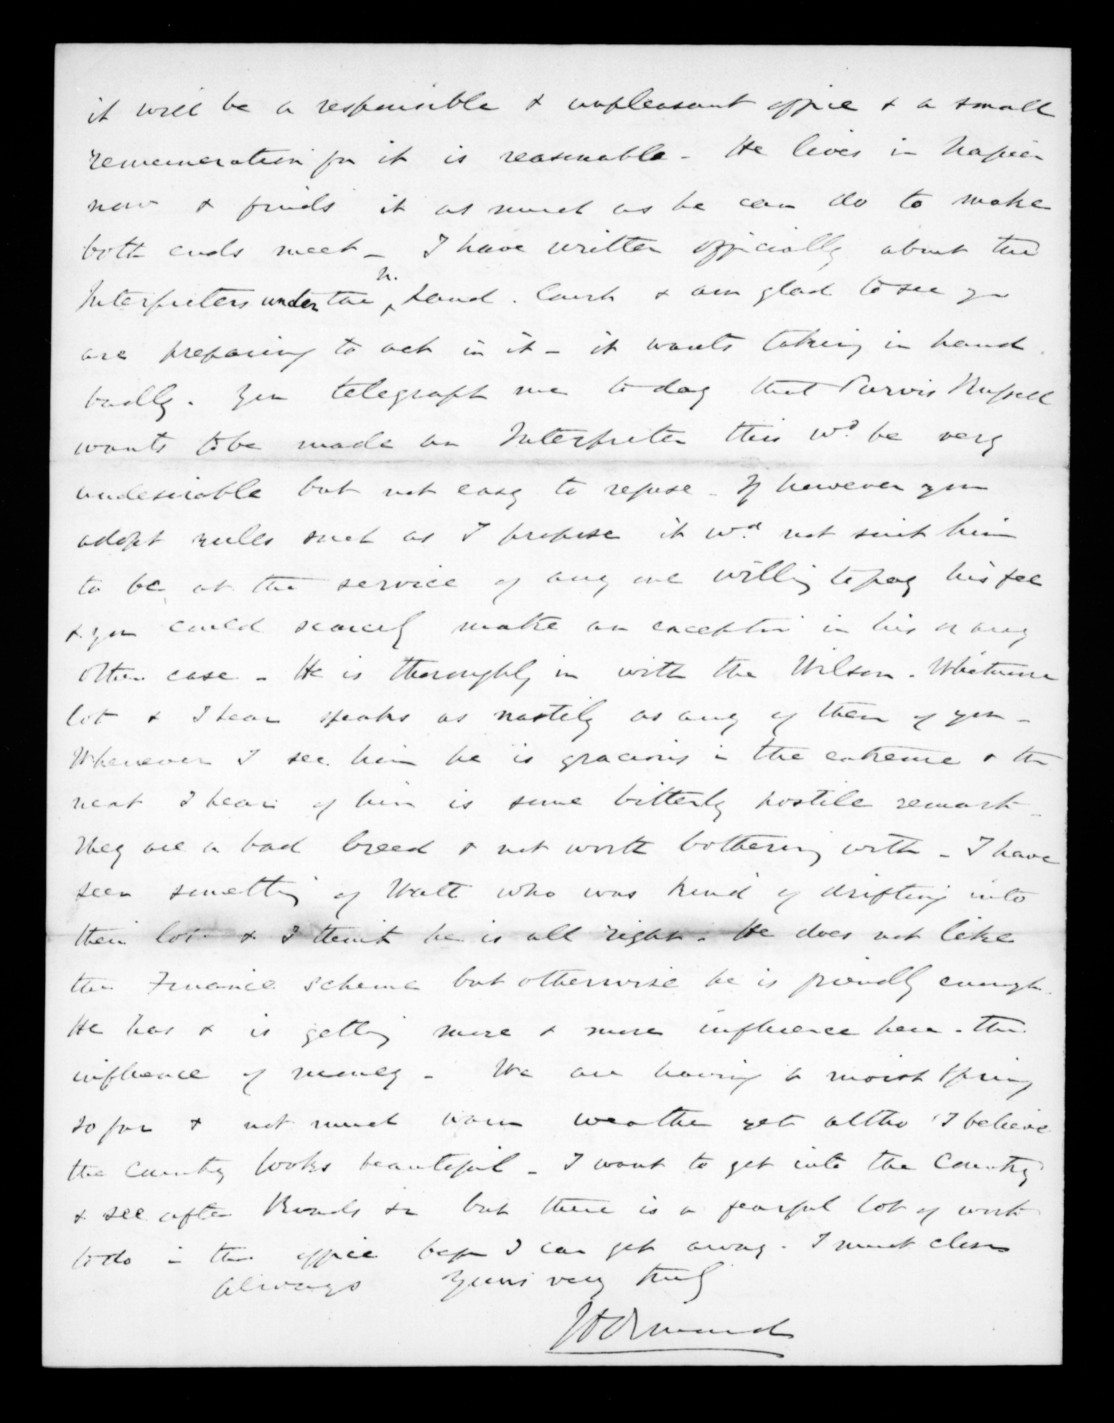 it will be a responsible & unpleasant office & a small
remuneration for it is reasonable - He lives in Napier
now & finds it as much as he can do to make
both ends meet - I have written officially about the
Interpreters under the N. Land. Court & am glad to see you
are preparing to act in it - it wants taking in hand
badly. You telegraph me to day that Purvis Russell
wants to be made an Interpreter this wd be very
undesirable but not easy to refuse - If however you
adopt rules such as I propose it wd not suit him
to be at the service of any one willing to pay his fee
& you could scarcely make an exception in his or any
other case - He is thoroughly in with the Wilson - Whitmore
lot & I hear speaks as nastily as any of them of you -
Whenever I see him he is gracious in the extreme & the
next I hear of him is some bitterly hostile remark -
They are a bad breed & not worth bothering with - I have
seen something of Watt who was kind of drifting into
their lot & I think he is all right. He does not like
the Finance scheme but otherwise he is friendly enough.
He has & is getting more & more influence here - the
influence of money - We are having a moist Spring
so far & not much warm weather yet altho' I believe
the Country looks beautiful - I want to get into the Country
& see after Roads &c but there is a fearful lot of work
to do in the office before I can get away. I must close
always Yours very truly
JD Ormond